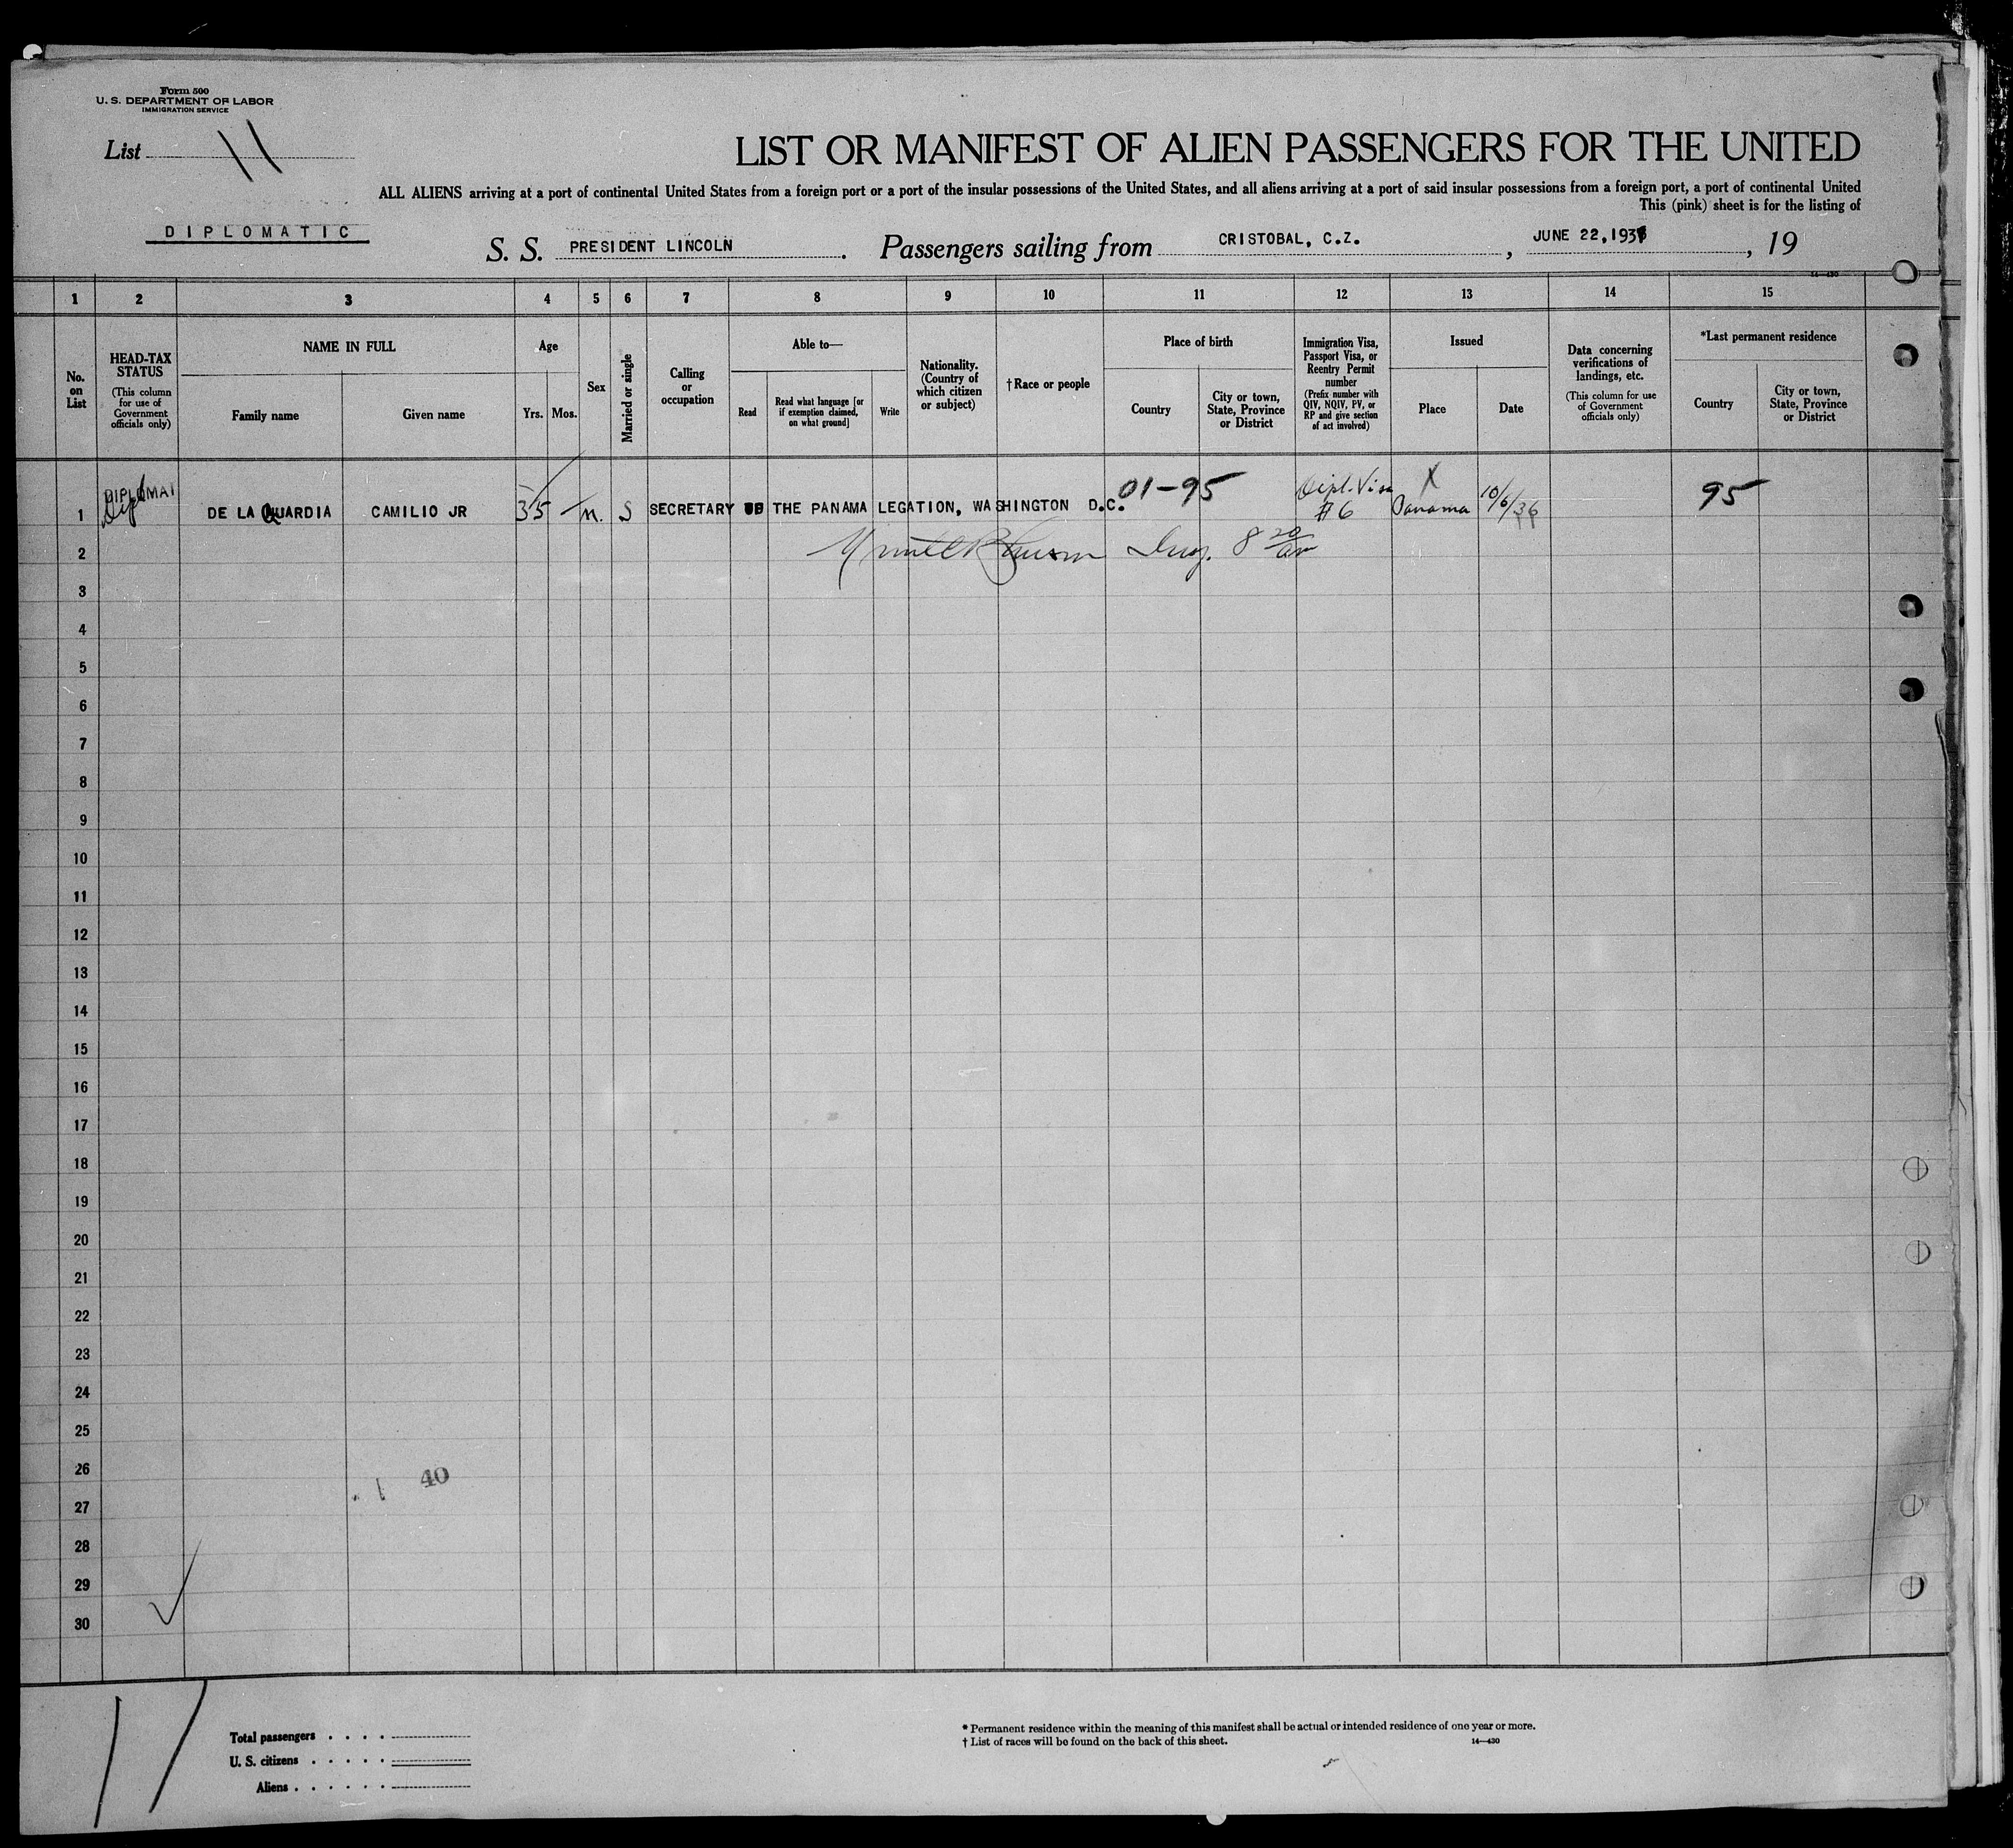 Form 500
U. S. DEPARTMENT OF LABOR
IMMIGRATION SERVICE
List 11
LIST OR MANIFEST OF ALIEN PASSENGERS FOR THE UNITED
ALL ALIENS arriving at a port of continental United States from a foreign port or a port of the insular possessions of the United States, and all aliens arriving at a port of said insular possessions from a foreign port, a port of continental United
This (pink) sheet is for the listing of
DIPLOMATIC
S. S. PRESIDENT LINCOLN. Passengers sailing from CRISTOBAL, C.Z., JUNE 22,193, 19
14—430
1 2 3 4 5 6 7 8 9 10 11 12 13 14 15
No. on List
HEAD-TAX STATUS
(This column for use of Government officials only)
NAME IN FULL
Family name
Given name
Age
Yrs. Mos.
Sex
Married or single
Calling or occupation
Able to—
Read
Read what language [or if exemption claimed, on what ground]
Write
Nationality. (Country of which citizen or subject)
†Race or people
Place of birth
Country
City or town, State, Province or District
Immigration Visa, Passport Visa, or Reentry Permit number
(Prefix number with QIV, NQIV, PV, or RP and give section of act involved)
Issued
Place
Date
Data concerning verifications of landings, etc.
(This column for use of Government officials only)
*Last permanent residence
Country
City or town, State, Province or District
DIPLOMAT
Dipl
1 DE LA GUARDIA CAMILIO JR 35 M. S SECRETARY THE PANAMA LEGATION, WASHINGTON D.C. 01-95 Dipl. Visa #6 X Panama 10/6/36 95
2 Insp. 8 20 am
3
4
5
6
7
8
9
10
11
12
13
14
15
16
17
18
19
20
21
22
23
24
25
26
40
27
28
29
30
11
Total passengers
U. S. citizens
Aliens
* Permanent residence within the meaning of this manifest shall be actual or intended residence of one year or more.
† List of races will be found on the back of this sheet.
14—430